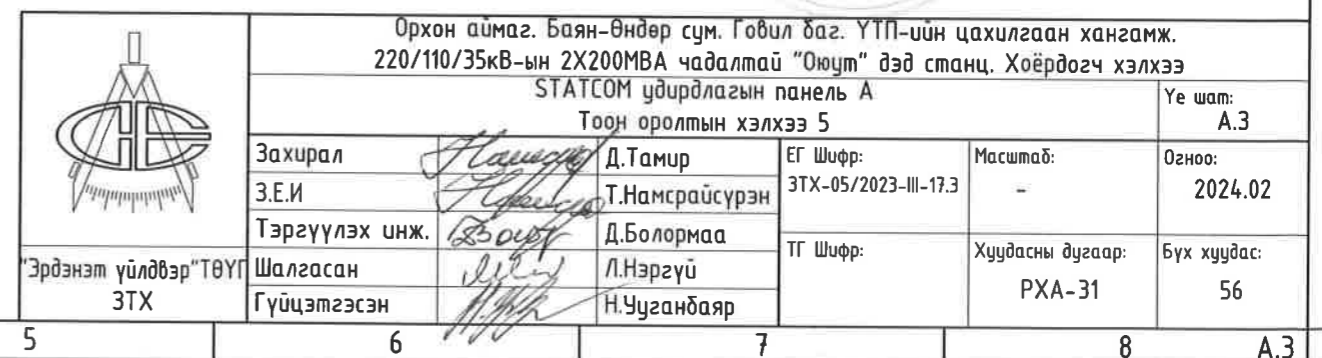 Орхон аймаг. Баян-Өндөр сум. Говил баг. ҮТП-ийн цахилгаан хангамж.
220/110/35кВ-ын 2X200МВА чадалтай "Оюут" дэд станц. Хоёрдогч хэлхээ
STATCOM удирдлагын панель А
Тоон оролтын хэлхээ 5
Үе шат:
А.3
Захирал
Д.Тамир
З.Е.И
Т.Намсрайсүрэн
Тэргүүлэх инж.
Д.Болормаа
Шалгасан
Л.Нэргүй
Гүйцэтгэсэн
Н.Ууганбаяр
ЕГ Шифр:
ЗТХ-05/2023-III-17.3
Масштаб:
-
Огноо:
2024.02
ТГ Шифр:
Хуудасны дугаар:
РХА-31
Бүх хуудас:
56
"Эрдэнэт үйлдвэр"ТӨҮГ
ЗТХ
5
6
7
8
А.3